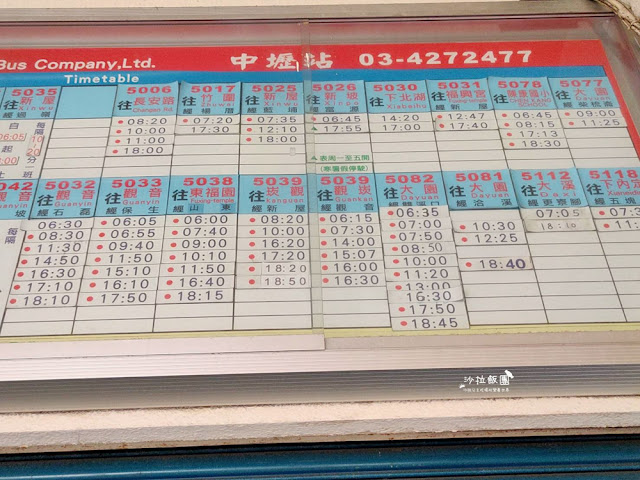 Bus Company,Ltd. 中壢站 03-4272477
Timetable
5035 往新屋 Xinwu
每隔
20
分一班
5006 往長安路
08:20
10:00
11:00
18:00
5017 往竹圍 Zhuwei
07:20
17:30
5025 往新屋 Xinwu
07:35
12:10
18:00
5026 往新坡 Xinpo
06:45
17:55
表周一至五開
(寒暑假停駛)
5030 往下北湖 Xiabeihu
14:20
17:00
5031 往福興宮
12:47
17:40
5076 往
06:45
08:15
17:13
18:30
5077 往大園 經柴梳崙
09:00
11:25
5042 往觀音
每隔
5032 往觀音 Guanyin 經石磊
06:30
08:30
11:30
14:50
16:30
17:10
18:10
5033 往觀音 Guanyin 經保生
06:05
06:55
09:40
11:50
15:10
16:10
17:50
5038 往東福園 經山東
06:00
07:40
09:00
10:10
11:50
16:40
18:15
5039 往崁觀 經新屋
08:20
10:00
16:20
17:20
18:20
18:50
5039 往觀崁 經觀音
06:15
07:30
14:00
15:07
16:00
16:30
5082 往大園 Dayuan
06:35
07:00
07:50
08:50
10:00
11:20
13:00
16:30
17:50
18:45
5081 往大園 Dayuan 經洽溪
10:30
12:25
18:40
5112 往大溪 Daxi 經更寮腳
07:05
18:10
5118 往下內
07:05
沙拉飯團